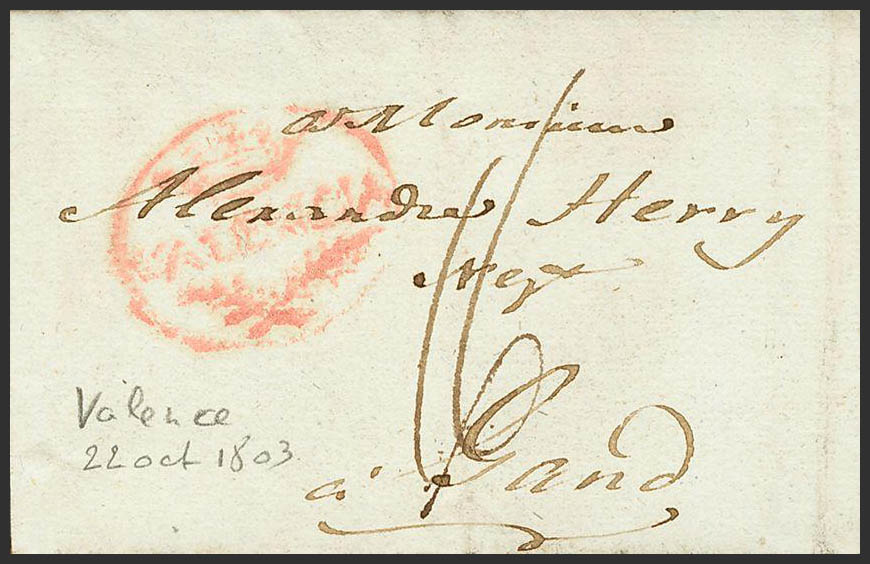 a Monsieur
Alexandre Herry
Negt
à Gand
VALENCIA
Valence
22 oct 1803